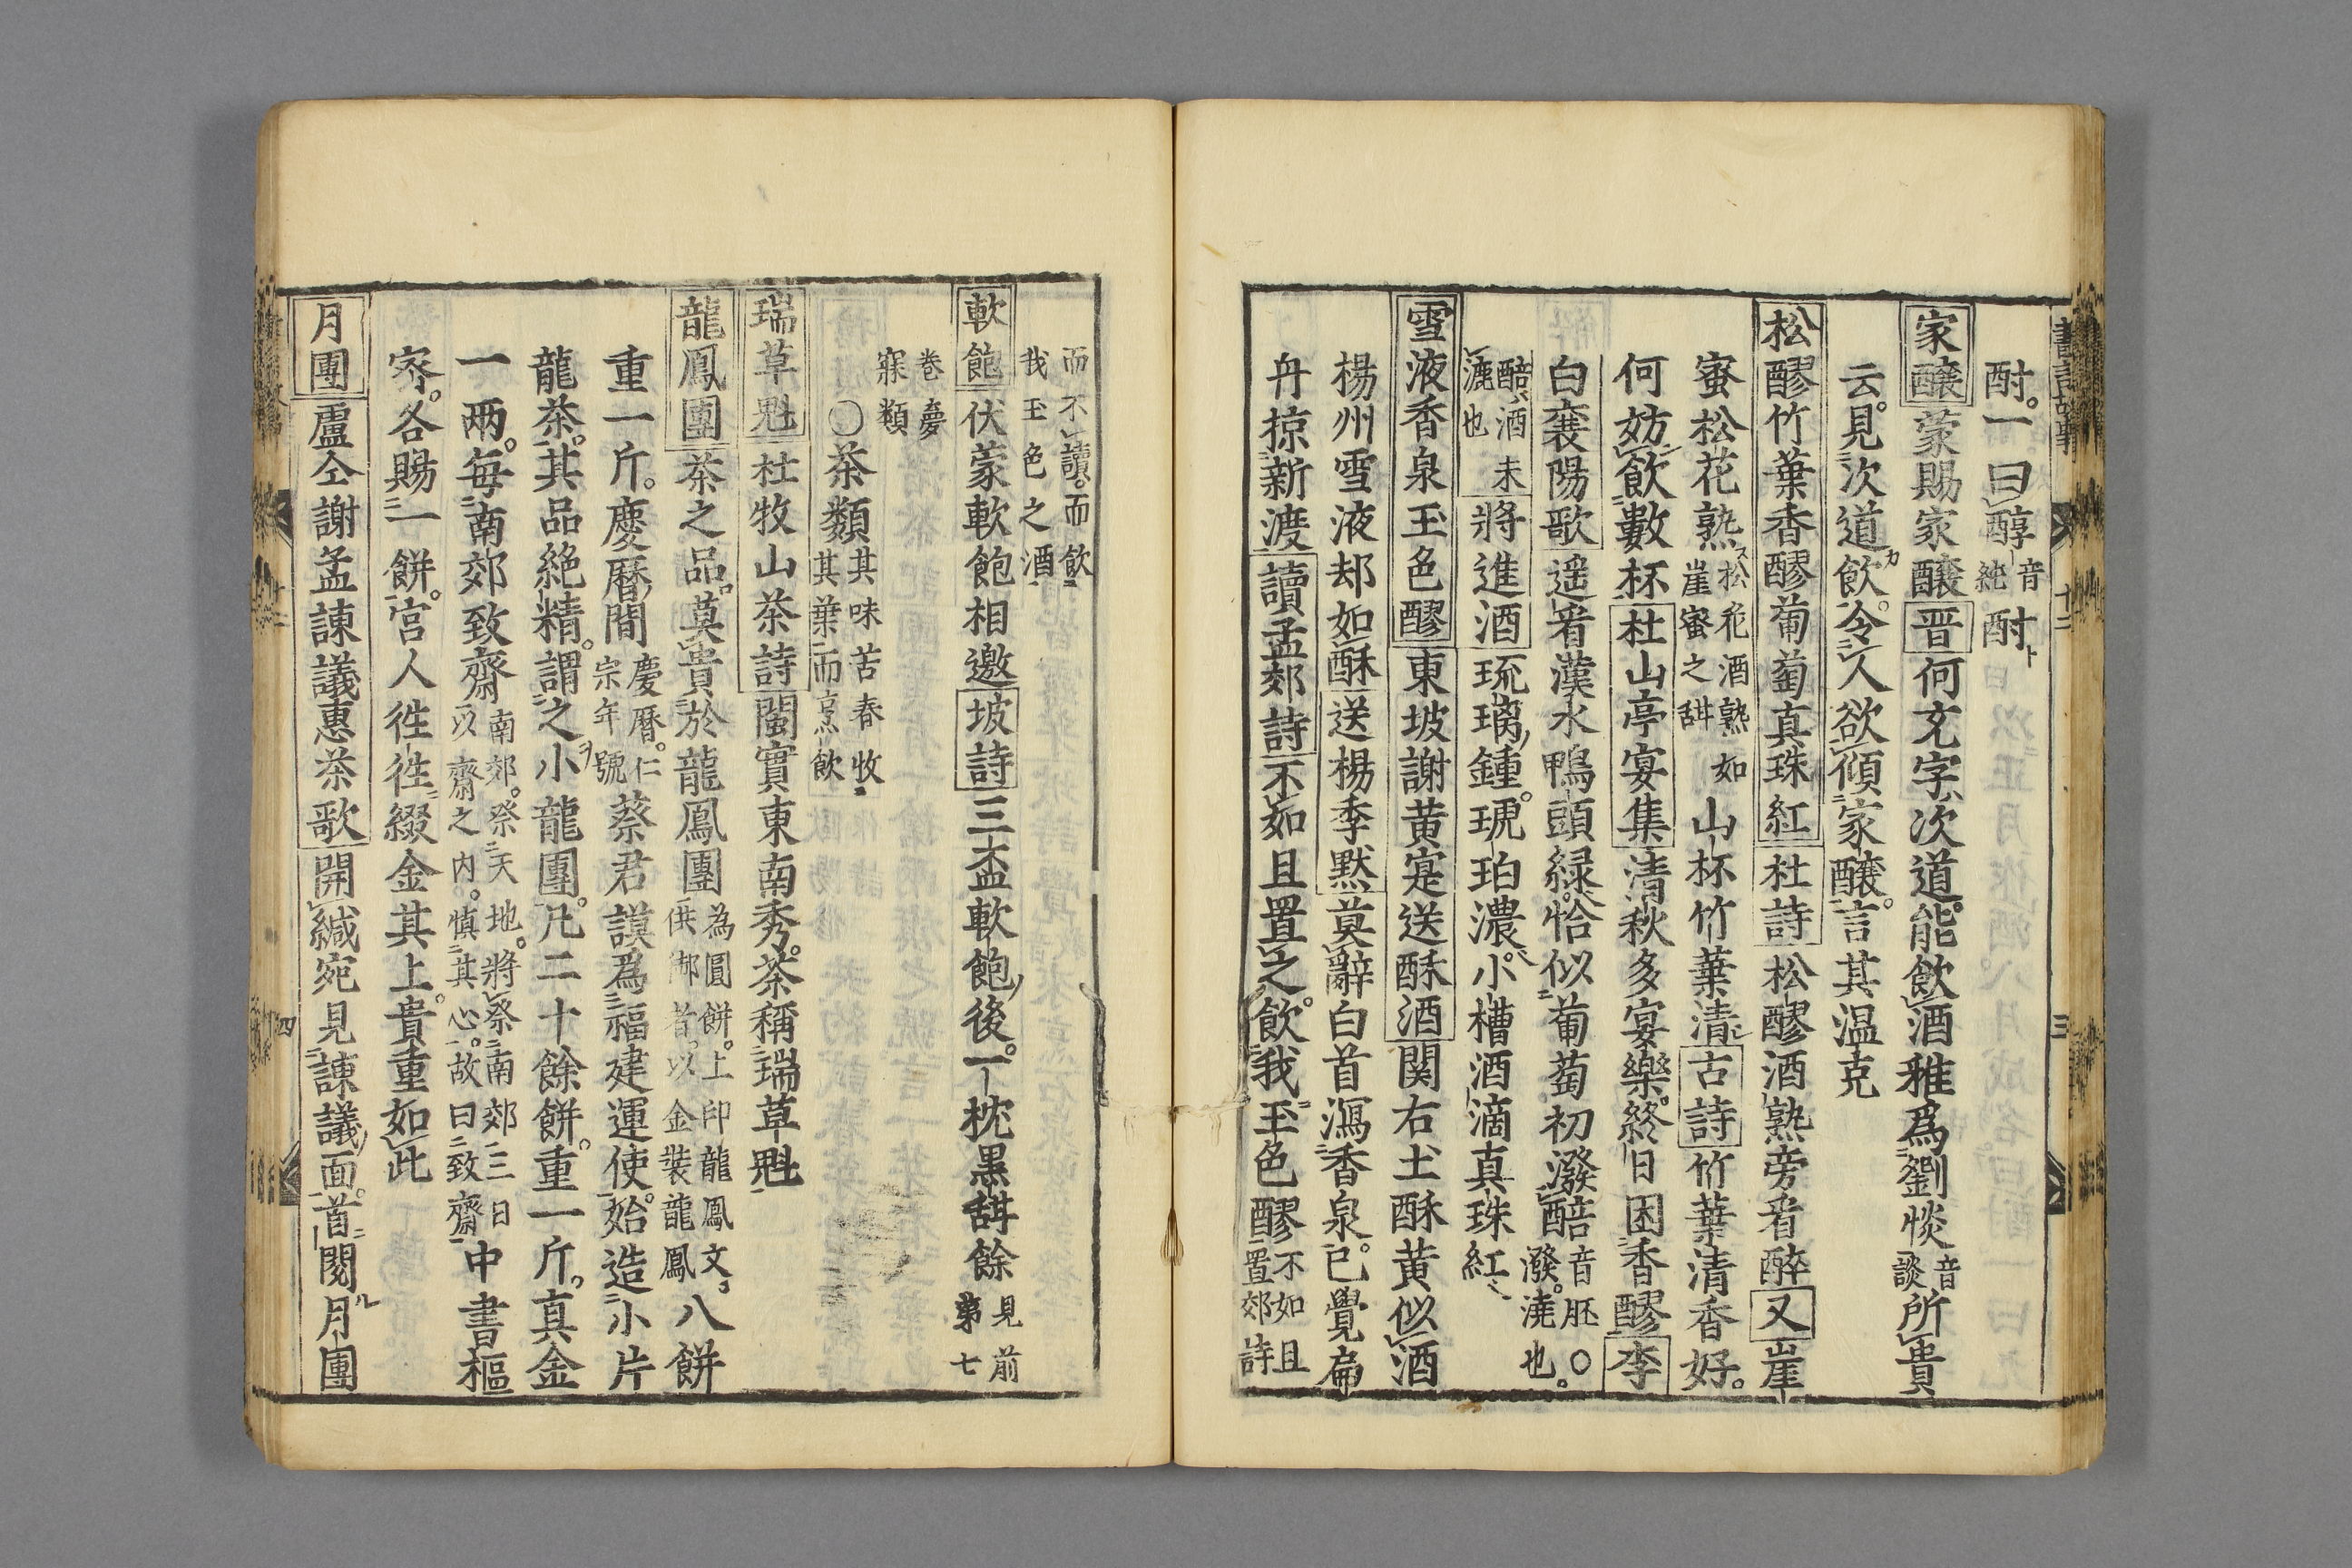 酎一曰醇音純酎
家醸蒙賜家醸晋何充字次道能飲酒雅爲劉惔音談所貴
云見次道飲令人欲傾家醸言其温克
松醪竹葉香醪葡萄真珠紅杜詩松醪酒熟旁看醉又崖
蜜松花熟松花酒熟如崖蜜之甜山杯竹葉清古詩竹葉清香好
何妨飲數杯杜山亭宴集清秋多宴樂終日困香醪李
白襄陽歌遥看漢水鴨頭緑恰似葡萄初潑醅音胚○潑漉也
醅酒未漉也將進酒琉璃鍾琥珀濃小槽酒滴真珠紅
雪液香泉玉色醪東坡謝黄寔送酥酒関右土酥黄似酒
楊州雪液却如酥送楊季默莫辭白首瀉香泉已覺扁
舟掠新渡讀孟郊詩不如且置之飲我玉色醪不如且置郊詩
而不讀而飲我玉色之酒
軟飽伏蒙軟飽相邀坡詩三盃軟飽後一枕黒甜餘見前第七
巻夢寐類
○茶類其味苦春收其葉而烹飲
瑞草魁杜牧山茶詩閩實東南秀茶稱瑞草魁
龍鳳團茶之品莫貴於龍鳳團為圓餅上印龍鳳文供御者以金裝龍鳳八餅
重一斤慶暦間慶暦仁宗年號蔡君謨爲福建運使始造小片
龍茶其品絶精謂之小龍團凡二十餘餅重一斤真金
一兩每南郊致齋南郊祭天地將祭南郊三日以齋之内慎其心故曰致齋中書樞
宻各賜一餅宮人徃徃綴金其上貴重如此
月團盧仝謝孟諫議惠茶歌開緘宛見諫議面首閲月團